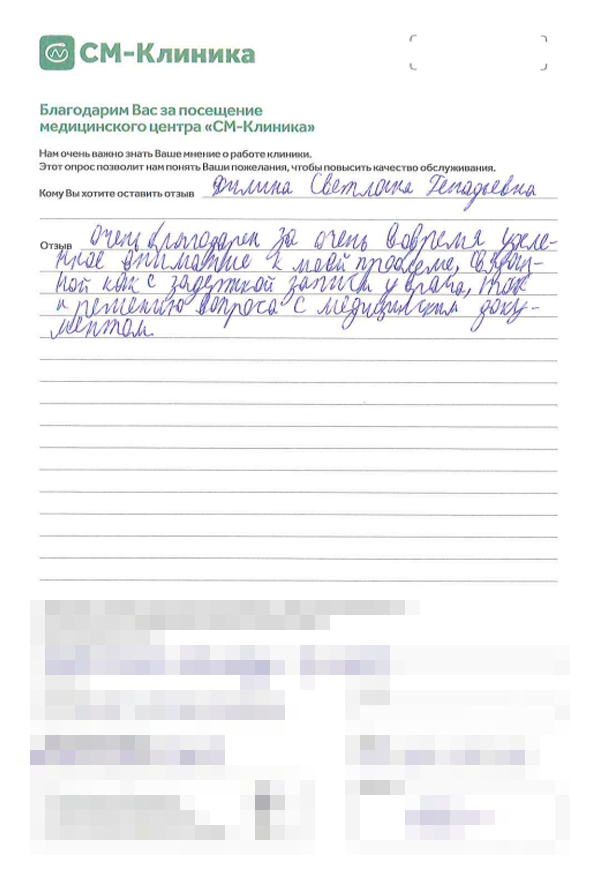 СМ-Клиника
Благодарим Вас за посещение
медицинского центра «СМ-Клиника»
Нам очень важно знать Ваше мнение о работе клиники.
Этот опрос позволит нам понять Ваши пожелания, чтобы повысить качество обслуживания.
Кому Вы хотите оставить отзыв Филина Светлана Генадьевна
Отзыв Очень благодарен за очень вовремя уделе-
нное внимание к моей проблеме, связан-
ной как с задержкой записи у врача, так
и решению вопроса с медицинским доку-
ментом.